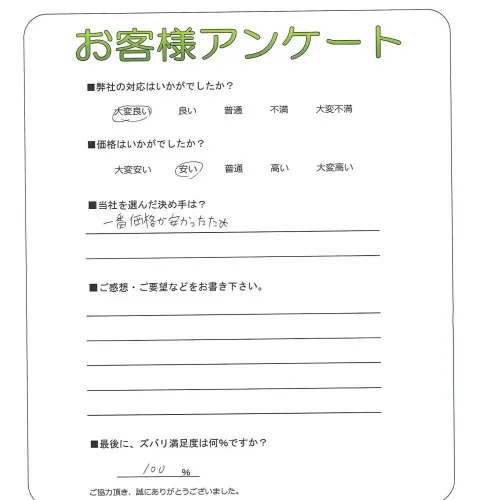 お客様アンケート
■弊社の対応はいかがでしたか？
大変良い 良い 普通 不満 大変不満
■価格はいかがでしたか？
大変安い 安い 普通 高い 大変高い
■当社を選んだ決め手は？
一番価格が安かったため
■ご感想・ご要望などをお書き下さい。
■最後に、ズバリ満足度は何％ですか？
100 %
ご協力頂き、誠にありがとうございました。